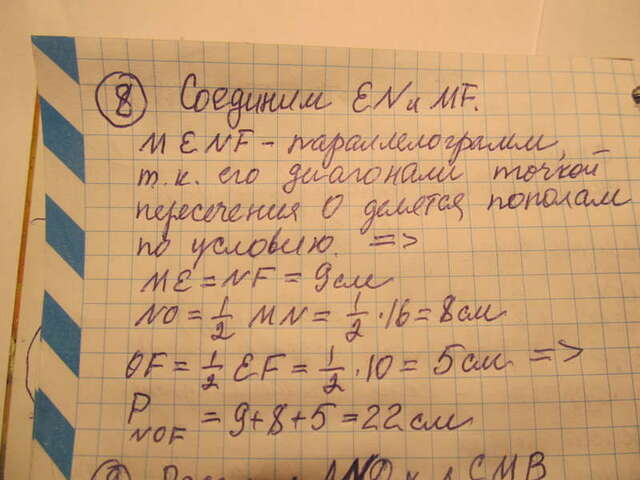 8 Соединим EN и MF.
MENF - параллелограмм,
т.к. его диагонали точкой
пересечения O делятся пополам
по условию. =>
ME = NF = 9см
NO = 1/2 MN = 1/2 · 16 = 8см
OF = 1/2 EF = 1/2 · 10 = 5см =>
P NOF = 9+8+5 = 22см